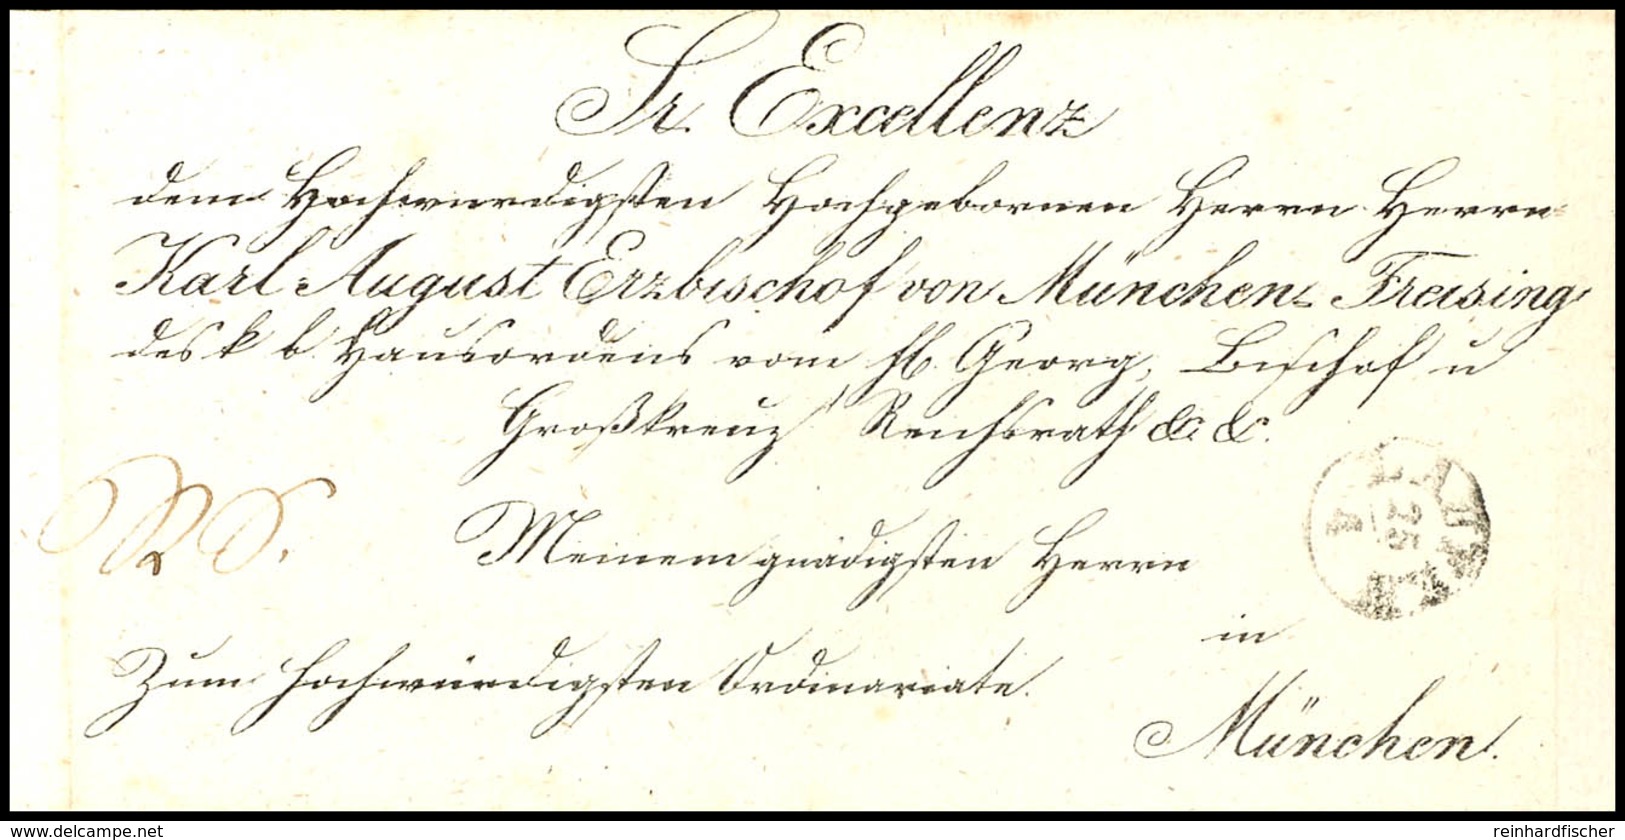 Sr. Excellenz
dem Hochwürdigsten Hochgebornen Herrn Herrn
Karl August Erzbischof von München-Freising
des k b. Hausordens vom hl. Georg, Bischof u
Großkreuz, Reichsrath &c &c.
Meinem gnädigsten Herrn
25
4
in
Zum hochwürdigsten Ordinariate.
München.
www.delcampe.net
reinhardfischer